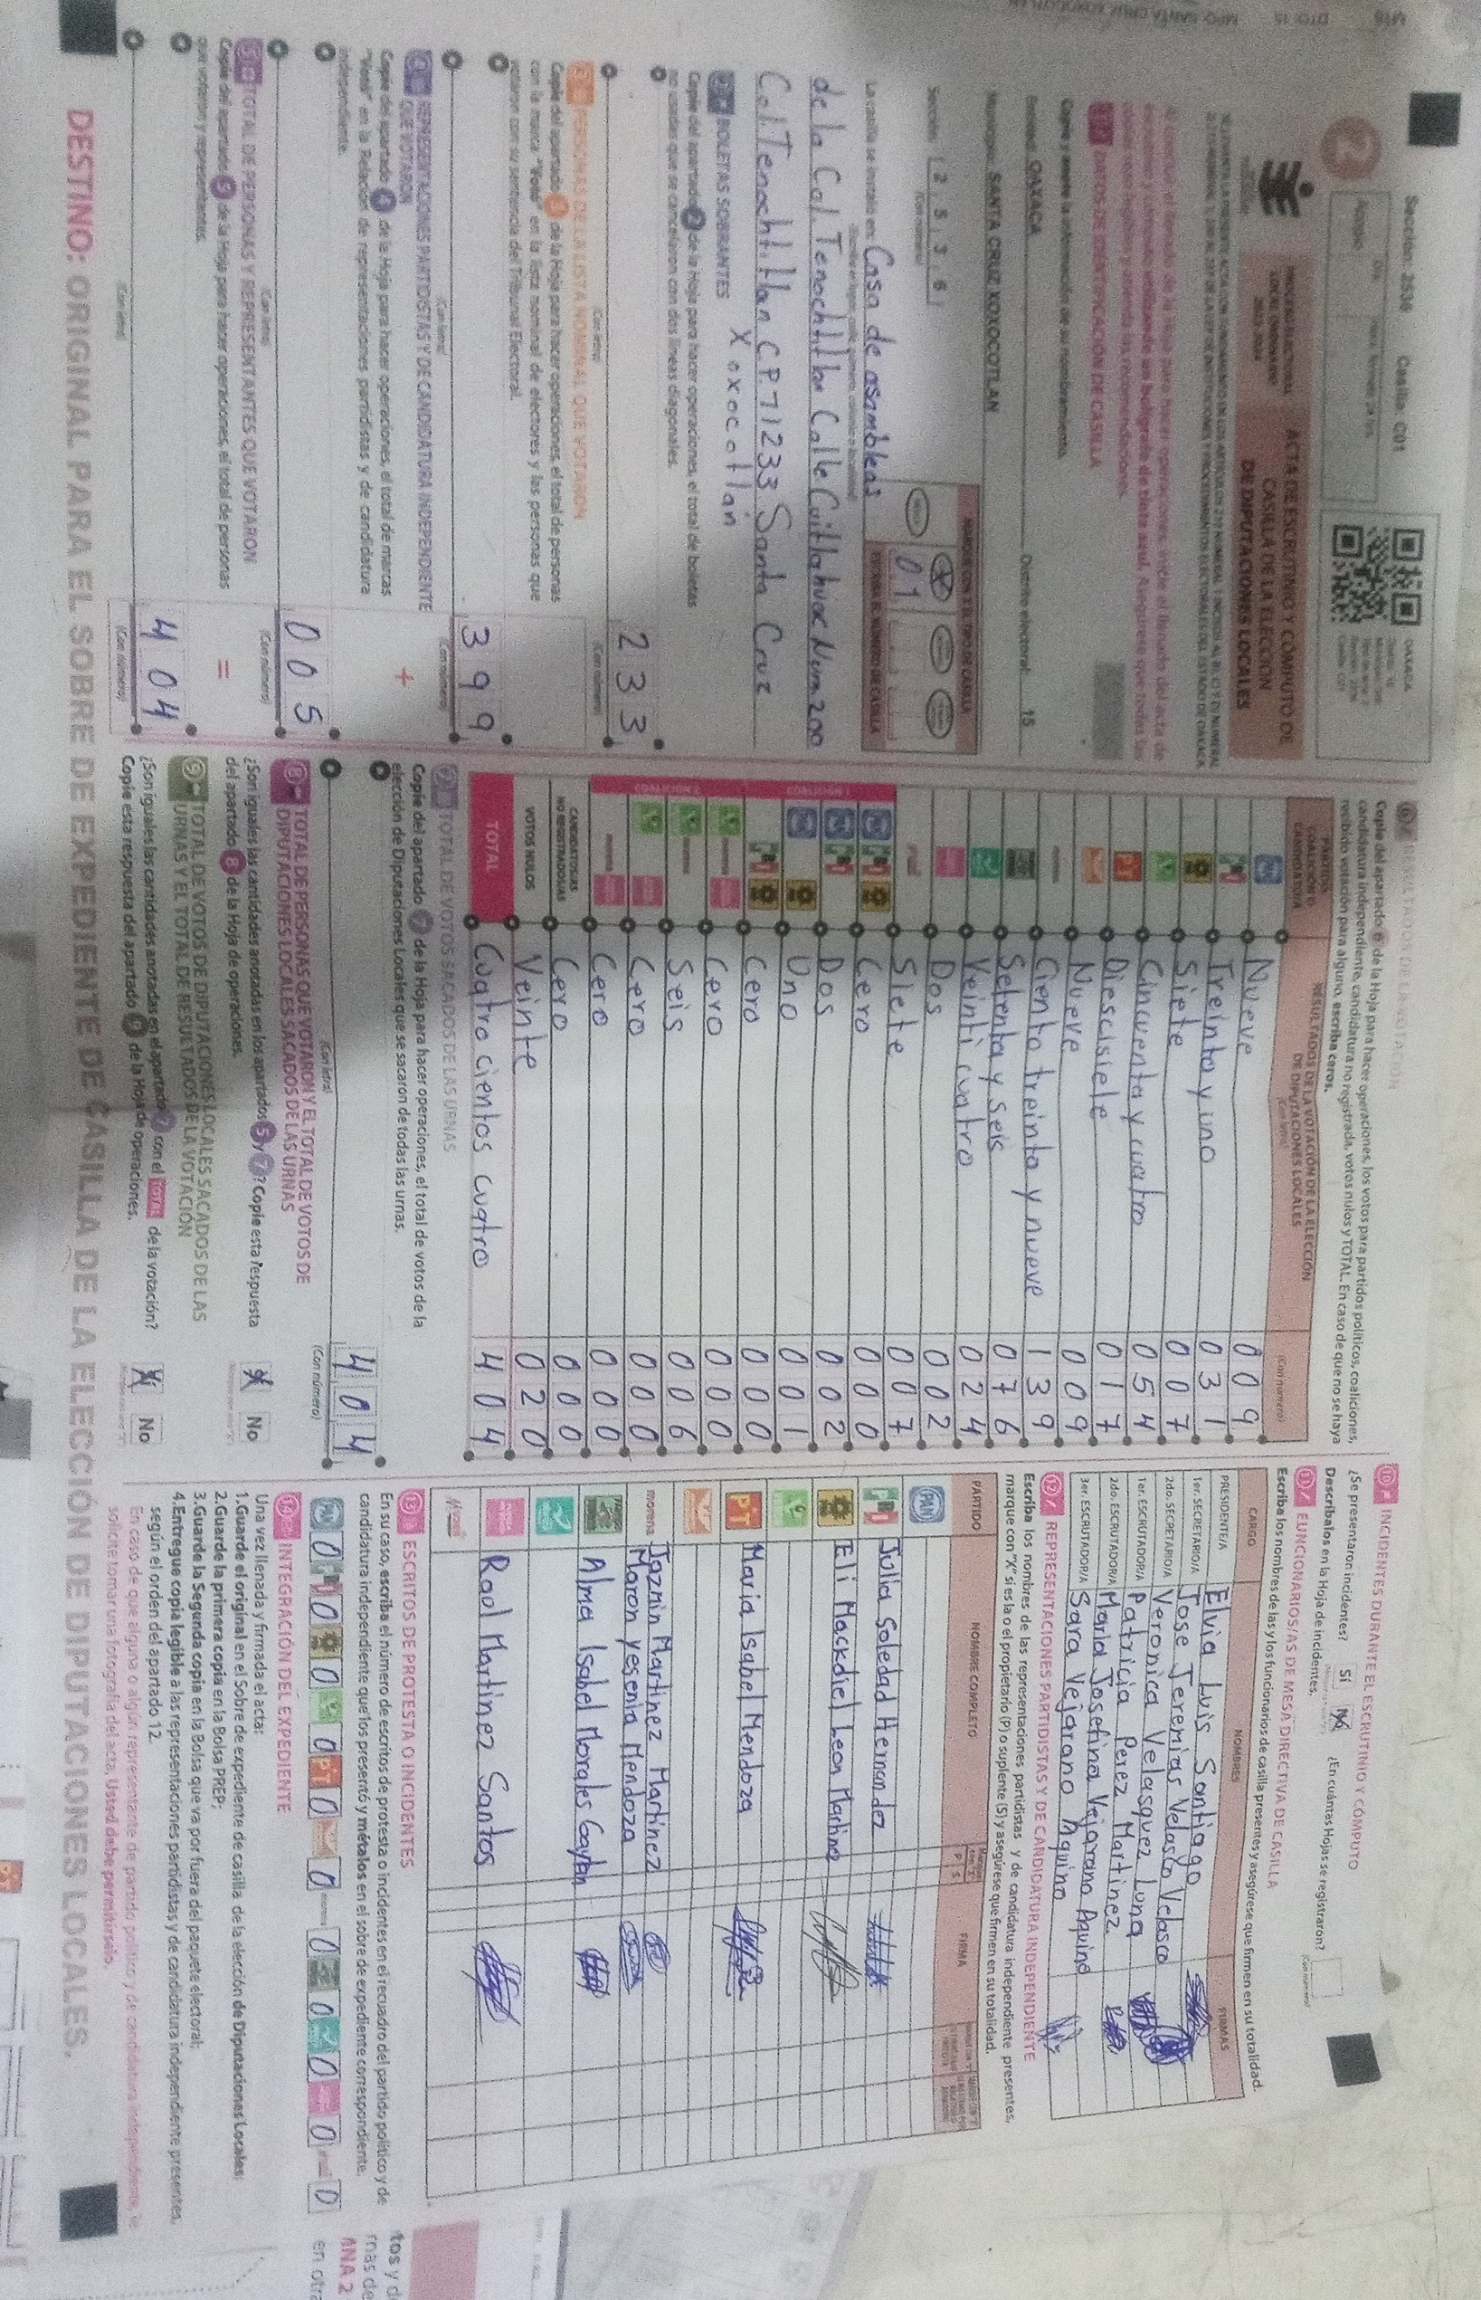 Sección: 2536 Casilla: C01
OAXACA
PROCESO ELECTORAL
ACTA DE ESCRUTINIO Y CÓMPUTO DE
CASILLA DE LA ELECCIÓN
DE DIPUTACIONES LOCALES
Al concluir el llenado de la Hoja para hacer operaciones, inicie el llenado del acta de
DATOS DE IDENTIFICACIÓN DE CASILLA
Copie y anote la información de su nombramiento.
Entidad: OAXACA Distrito electoral: 15
Municipio: SANTA CRUZ XOXOCOTLAN
Sección: 2 5 3 6
(Con número)
01
La casilla se instaló en: Casa de asambleas
de la Col. Tenochtitlan Calle Cuitlahuac Num 200
Col. Tenochtitlan C.P. 71233 Santa Cruz
Xoxocotlan
2 BOLETAS SOBRANTES
Copie del apartado 2 de la Hoja para hacer operaciones, el total de boletas
no usadas que se cancelaron con dos líneas diagonales.
233
(Con letra) (Con número)
3 PERSONAS DE LA LISTA NOMINAL QUE VOTARON
Copie del apartado 3 de la Hoja para hacer operaciones, el total de personas
con la marca "Votó" en la lista nominal de electores y las personas que
votaron con su sentencia del Tribunal Electoral.
399
(Con letra) (Con número)
4 REPRESENTACIONES PARTIDISTAS Y DE CANDIDATURA INDEPENDIENTE
QUE VOTARON
+
Copie del apartado 4 de la Hoja para hacer operaciones, el total de marcas
"Votó" en la Relación de representaciones partidistas y de candidatura
independiente.
005
(Con letra) (Con número)
5 TOTAL DE PERSONAS Y REPRESENTANTES QUE VOTARON
Copie del apartado 5 de la Hoja para hacer operaciones, el total de personas
que votaron y representantes.
=
404
(Con letra) (Con número)
6 RESULTADOS DE LA VOTACIÓN
Copie del apartado 6 de la Hoja para hacer operaciones, los votos para partidos políticos, coaliciones,
candidatura independiente, candidatura no registrada, votos nulos y TOTAL. En caso de que no se haya
recibido votación para alguno, escriba ceros.
PARTIDO, COALICIÓN O CANDIDATURA
RESULTADOS DE LA VOTACIÓN DE LA ELECCIÓN
DE DIPUTACIONES LOCALES
(Con letra) (Con número)
Nueve 009
Treinta y uno 031
Siete 007
Cincuenta y cuatro 054
PT Diescisiete 017
Nueve 009
Ciento treinta y nueve 139
Setenta y seis 076
Veinti cuatro 024
Dos 002
Siete 007
Cero 000
Dos 002
Uno 001
Cero 000
Cero 000
Seis 006
Cero 000
Cero 000
CANDIDATOS/AS NO REGISTRADOS/AS Cero 000
VOTOS NULOS Veinte 020
TOTAL Cuatro cientos cuatro 404
7 TOTAL DE VOTOS SACADOS DE LAS URNAS
Copie del apartado 7 de la Hoja para hacer operaciones, el total de votos de la
elección de Diputaciones Locales que se sacaron de todas las urnas.
404
(Con letra) (Con número)
8 TOTAL DE PERSONAS QUE VOTARON Y EL TOTAL DE VOTOS DE
DIPUTACIONES LOCALES SACADOS DE LAS URNAS
¿Son iguales las cantidades anotadas en los apartados 5 y 7? Copie esta respuesta
del apartado 8 de la Hoja de operaciones.
No
9 TOTAL DE VOTOS DE DIPUTACIONES LOCALES SACADOS DE LAS
URNAS Y EL TOTAL DE RESULTADOS DE LA VOTACIÓN
¿Son iguales las cantidades anotadas en el apartado 7 con el TOTAL de la votación?
Copie esta respuesta del apartado 9 de la Hoja de operaciones.
No
10 INCIDENTES DURANTE EL ESCRUTINIO Y CÓMPUTO
¿Se presentaron incidentes? Sí No ¿En cuántas Hojas se registraron?
(Con número)
Descríbalos en la Hoja de incidentes.
11 FUNCIONARIOS/AS DE MESA DIRECTIVA DE CASILLA
Escriba los nombres de las y los funcionarios de casilla presentes y asegúrese que firmen en su totalidad.
CARGO NOMBRES FIRMAS
PRESIDENTE/A Elvia Luis Santiago
1er. SECRETARIO/A Jose Jeremias Velasco Velasco
2do. SECRETARIO/A Veronica Velasquez Luna
1er. ESCRUTADOR/A Patricia Perez Martinez
2do. ESCRUTADOR/A Maria Josefina Vejarano Aquino
3er. ESCRUTADOR/A Sara Vejarano Aquino
12 REPRESENTACIONES PARTIDISTAS Y DE CANDIDATURA INDEPENDIENTE
Escriba los nombres de las representaciones partidistas y de candidatura independiente presentes,
marque con "X" si es la o el propietario (P) o suplente (S) y asegúrese que firmen en su totalidad.
PARTIDO NOMBRE COMPLETO P S FIRMA
PAN
PRI Julia Soledad Hernandez
Eli Mackdiel Leon Martinez
PT Maria Isabel Mendoza
morena Jazmin Martinez Martinez
Maron yesenia Mendoza
Alma Isabel Morales Gaytan
Raol Martinez Santos
13 ESCRITOS DE PROTESTA O INCIDENTES
En su caso, escriba el número de escritos de protesta o incidentes en el recuadro del partido político y de
candidatura independiente que los presentó y métalos en el sobre de expediente correspondiente.
PAN 0 PRI 0 0 0 PT 0 0 0 0 0 0 0
14 INTEGRACIÓN DEL EXPEDIENTE
Una vez llenada y firmada el acta:
1.Guarde el original en el Sobre de expediente de casilla de la elección de Diputaciones Locales;
2.Guarde la primera copia en la Bolsa PREP;
3.Guarde la Segunda copia en la Bolsa que va por fuera del paquete electoral;
4.Entregue copia legible a las representaciones partidistas y de candidatura independiente presentes,
según el orden del apartado 12.
En caso de que alguna o algún representante de partido político y de candidatura independiente, le
solicite tomar una fotografía del acta, Usted debe permitírselo.
DESTINO: ORIGINAL PARA EL SOBRE DE EXPEDIENTE DE CASILLA DE LA ELECCIÓN DE DIPUTACIONES LOCALES.